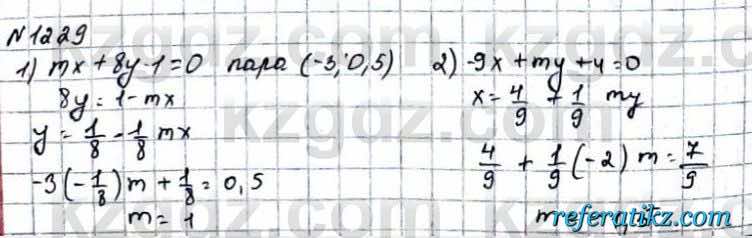 N 1229
1) mx + 8y - 1 = 0 пара (-3; 0,5)
8y = 1 - mx
y = 1/8 - 1/8 mx
-3(-1/8)m + 1/8 = 0,5
m = 1
2) -9x + my + 4 = 0
x = 4/9 + 1/9 my
4/9 + 1/9 (-2) m = 7/9
m
kzgdz.com
referatikz.com